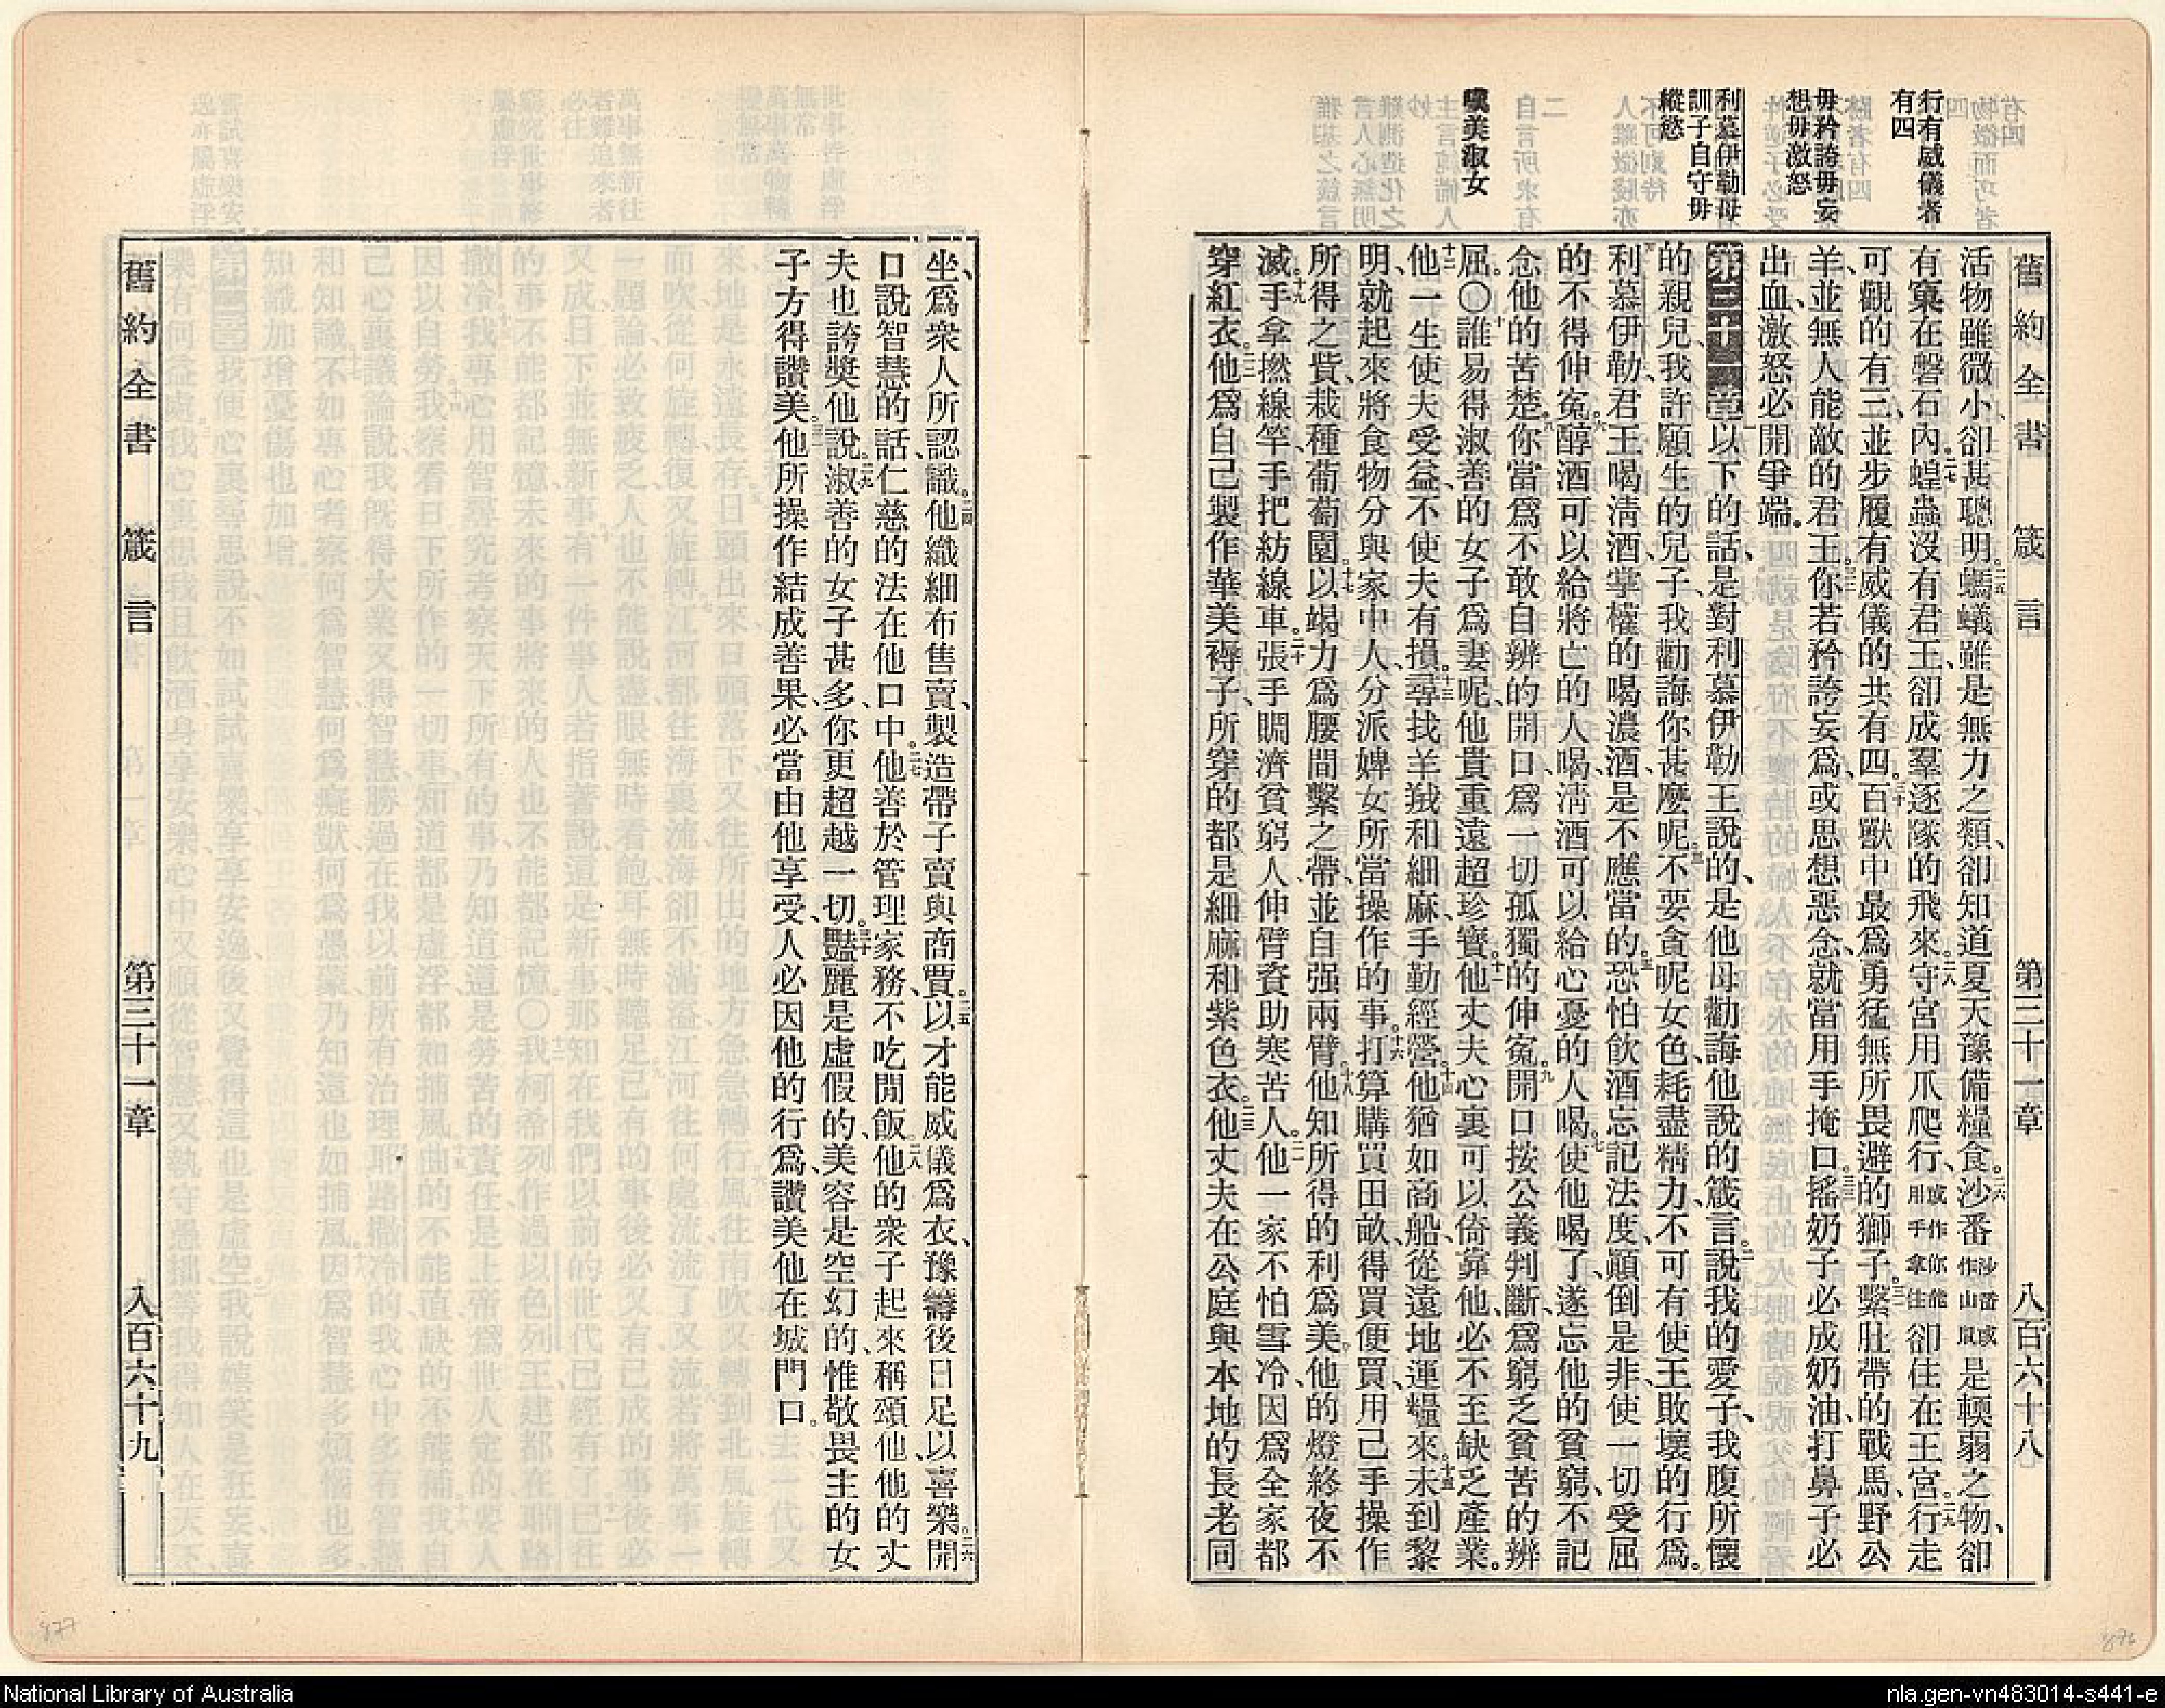 舊約全書 箴言 第三十一章 八百六十八
行有威儀者
有四
毋矜誇毋妄
想毋激怒
利慕伊勒母
訓子自守毋
縱慾
嘆美淑女
活物雖微小、卻甚聰明。二五螞蟻雖是無力之類、卻知道夏天豫備糧食。二六沙番沙番或作山鼠是輭弱之物、卻
有窠在磐石內。二七蝗蟲沒有君王、卻成羣逐隊的飛來。二八守宮用爪爬行、或作你能用手拿住卻住在王宮。二九行走
可觀的有三、並步履有威儀的共有四。三十百獸中最爲勇猛無所畏避的獅子。三一繫肚帶的戰馬、野公
羊、並無人能敵的君王。三二你若矜誇妄爲、或思想惡念、就當用手掩口。三三搖奶子必成奶油、打鼻子必
出血、激怒必開爭端。
第三十一章一以下的話、是對利慕伊勒王說的、是他母勸誨他說的箴言。二說我的愛子、我腹所懷
的親兒、我許願生的兒子、我勸誨你甚麽呢。三不要貪呢女色、耗盡精力、不可有使王敗壞的行爲。
四利慕伊勒、君王喝淸酒、掌權的喝濃酒、是不應當的。五恐怕飲酒忘記法度、顚倒是非、使一切受屈
的不得伸寃。六醇酒可以給將亡的人喝、淸酒可以給心憂的人喝。七使他喝了、遂忘他的貧窮、不記
念他的苦楚。八你當爲不敢自辨的開口、爲一切孤獨的伸寃。九開口按公義判斷、爲窮乏貧苦的辨
屈。〇十誰易得淑善的女子爲妻呢、他貴重遠超珍寶。十一他丈夫心裏可以倚靠他、必不至缺乏產業。
十二他一生使夫受益、不使夫有損。十三尋找羊羢和細麻、手勤經營。十四他猶如商船、從遠地運糧來。十五未到黎
明、就起來、將食物分與家中人、分派婢女所當操作的事。十六打算購買田畝、得買便買、用己手操作
所得之貲、栽種葡萄園。十七以竭力爲腰間繫之帶、並自强兩臂。十八他知所得的利爲美、他的燈終夜不
滅。十九手拿撚線竿、手把紡線車。二十張手賙濟貧窮人、伸臂資助寒苦人。二一他一家不怕雪冷、因爲全家都
穿紅衣。二二他爲自己製作華美褥子、所穿的都是細麻和紫色衣。二三他丈夫在公庭與本地的長老同
坐、爲衆人所認識。二四他織細布售賣、製造帶子賣與商賈。二五以才能威儀爲衣、豫籌後日足以喜樂。二六開
口說智慧的話、仁慈的法在他口中。二七他善於管理家務、不吃閒飯。二八他的衆子起來稱頌他、他的丈
夫也誇獎他、說、二九淑善的女子甚多、你更超越一切。三十豔麗是虛假的、美容是空幻的、惟敬畏主的女
子方得讚美。三一他所操作結成善果、必當由他享受、人必因他的行爲、讚美他在城門口。
舊約全書 箴言 第三十一章 八百六十九
877
876
National Library of Australia
nla.gen-vn483014-s441-e